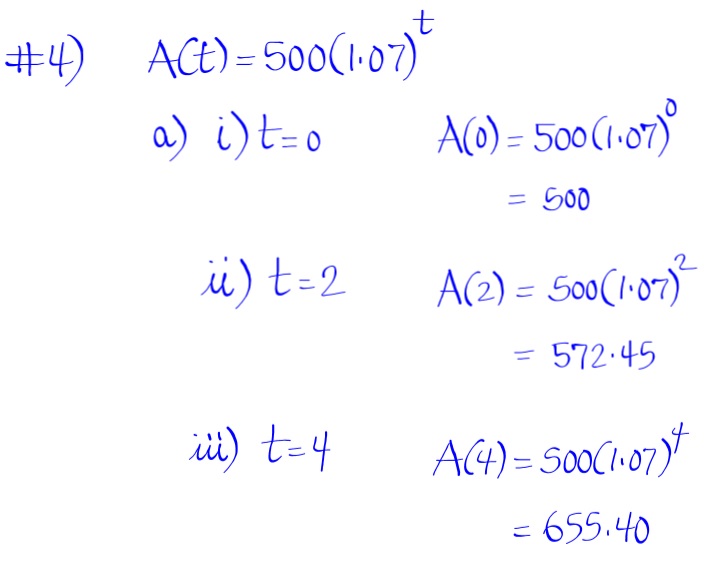 #4) A(t) = 500(1.07)^t
a) i) t=0 A(0) = 500(1.07)^0
= 500
ii) t=2 A(2) = 500(1.07)^2
= 572.45
iii) t=4 A(4) = 500(1.07)^4
= 655.40